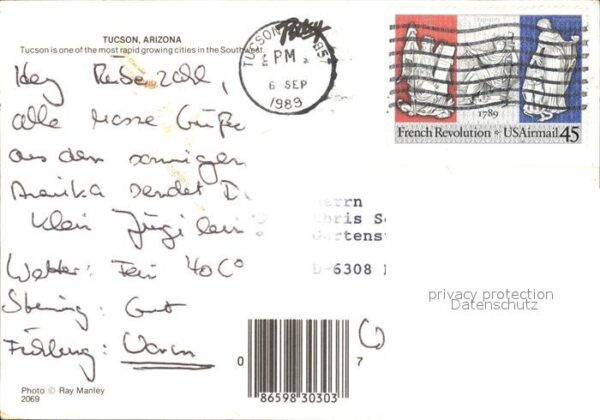 TUCSON, ARIZONA
Tucson is one of the most rapid growing cities in the Southwest.
TUCSON 857
PM
6 SEP
1989
1789
French Revolution • USAirmail 45
Hey Rübenzahl,
alle Grüße
aus dem sonnigen
Amerika sendet D
Klein
Wetter: Fein 40 C°
Stimmung: Gut
Fühlung: Warm
errn
Chris S
Gartens
D-6308
privacy protection
Datenschutz
0
86598 30303
7
Photo © Ray Manley
2069